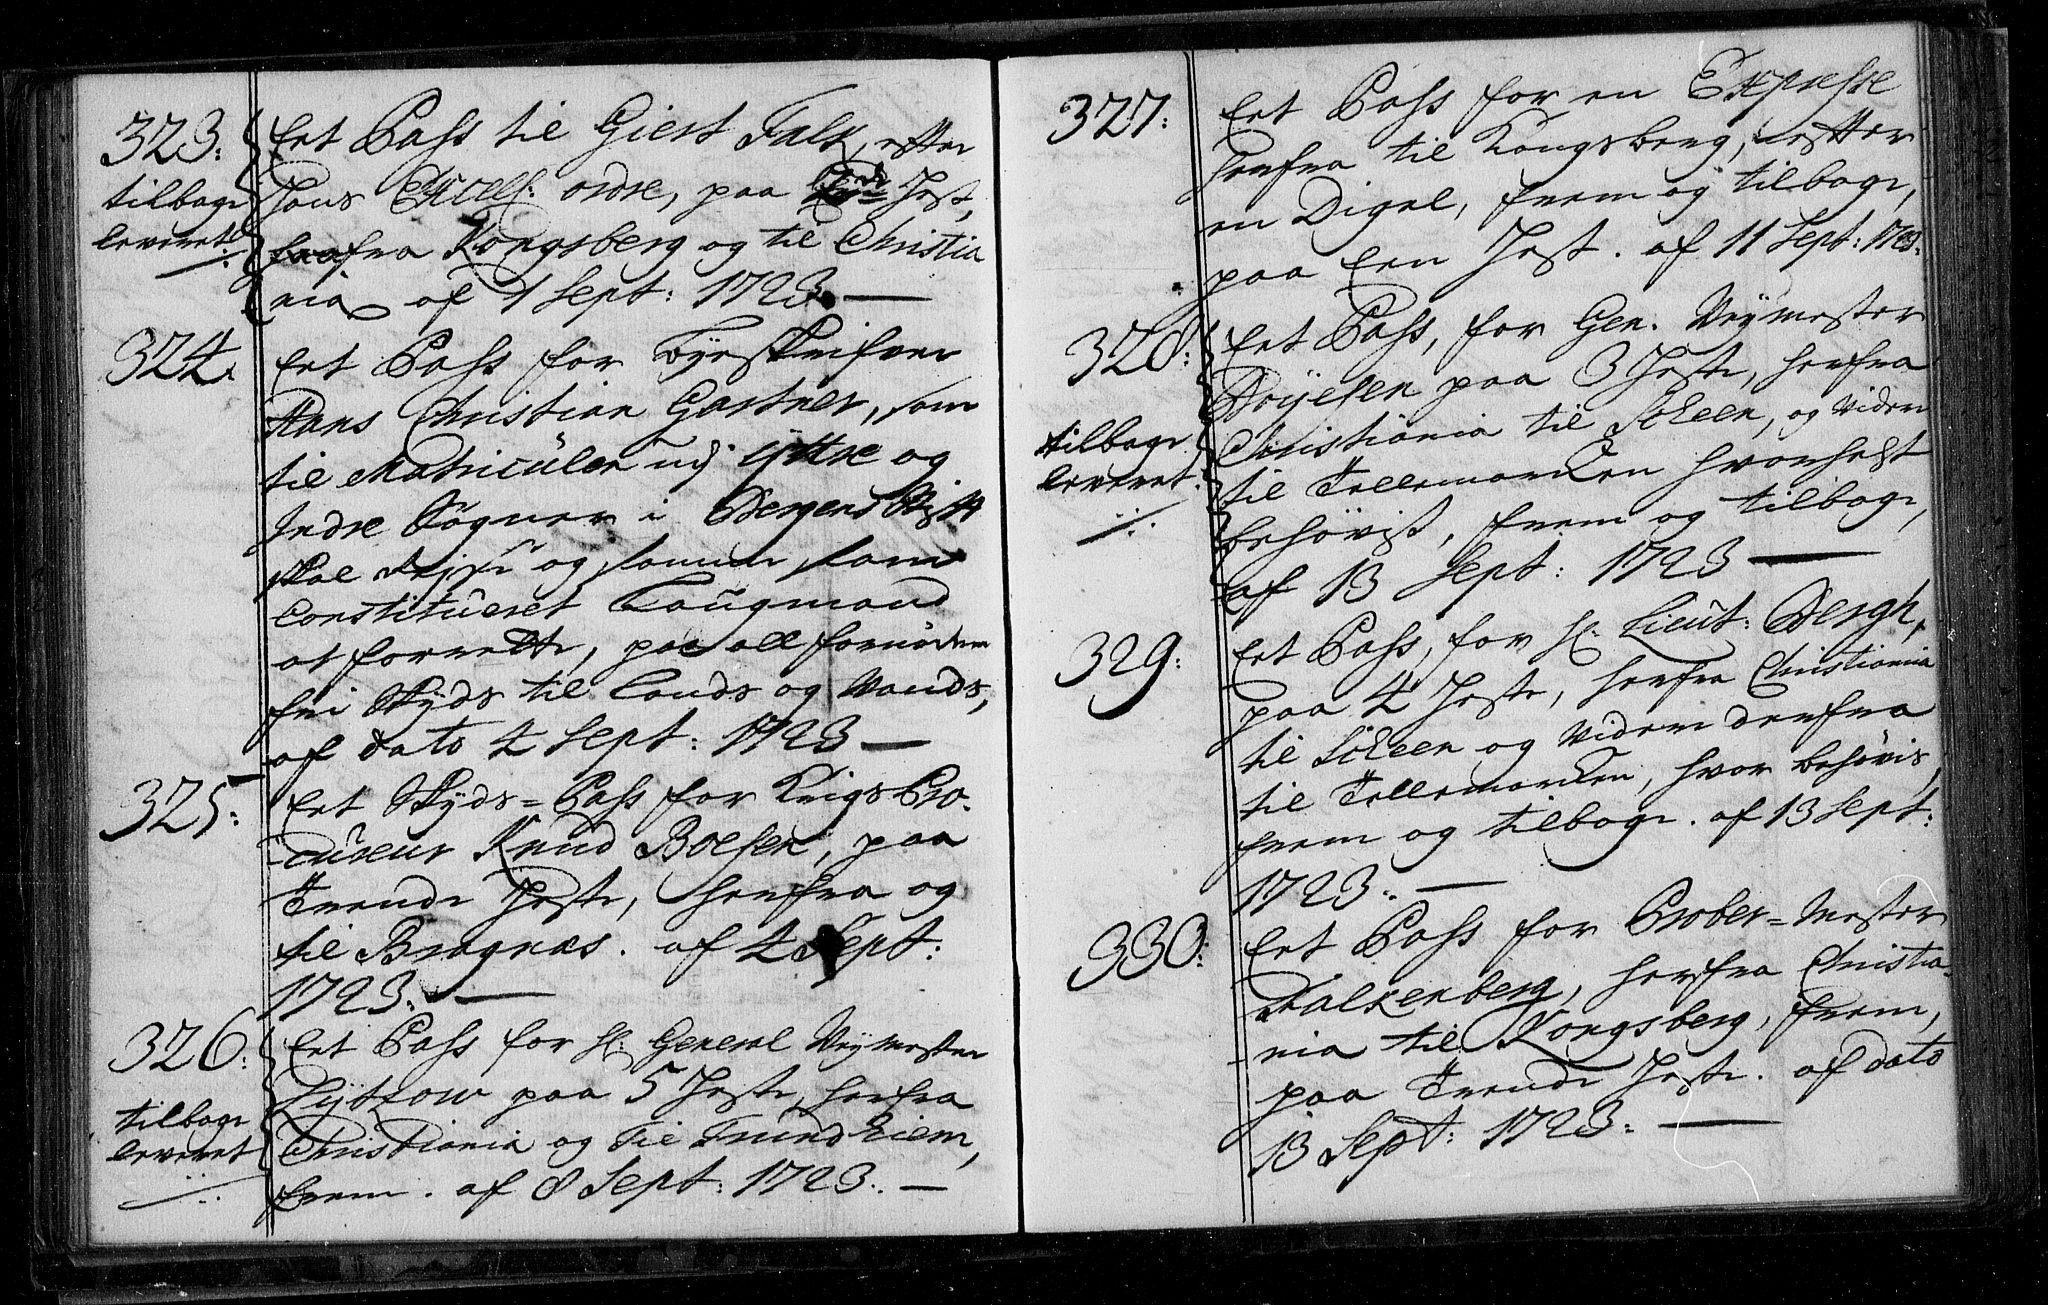 323:
Eet Pass til Giert Falk, efter
tilbage
Hans Excell: ordre, paa Hest,
leveret
fra Kongsberg og til Christia
nia af 1 Sept: 1723. —
324.
Eet Pass for Byeskrifver
Hans Christian Gartner, som
til Matriculen udj Yttre og
Indre Sogner i Bergens Stift
skal Rejse og samme som
Constitueret Laugmand
at forrette, paa all fornøden
fri Skyds til Lands og Vands,
af dato 4 Sept: 1723 —
325:
Eet Skyds-Pass for Krigs Pro-
cureur Knud Boesen, paa
Trende Heste, herfra og
til Bragnæs. af 4 Sept:
1723. —
326:
Eet Pass for H: General Vejmester
Lytzow paa 5 Heste, herfra
tilbage
Christiania og til Trundhiem,
leveret
frem. af 8 Sept: 1723. —
327:
Eet Pass for en Expresse
herfra til Kongsberg, efter
en Digel, frem og tilbage,
paa een Hest. af 11 Sept: 1723.
328:
Eet Pass, for Gen. Vejmester
Bojesen paa 3 Heste, herfra
tilbage
Christiania til Scheen, og viden
leveret.
til Tellemarken hvorhelst
behøvist, frem og tilbage,
af 13 Sept: 1723 —
329:
Eet Pass, for H. Lieut: Bergh,
paa 4 Heste, herfra Christiania
til Scheen og viden derfra
til Tellemarken, hvor behøvis,
frem og tilbage. af 13 Sept:
1723. —
330:
Eet Pass for Prober-Mester
Falkenberg, herfra Christia-
nia til Kongsberg, frem,
paa Trende Heste. af dato
13 Sept: 1723. —